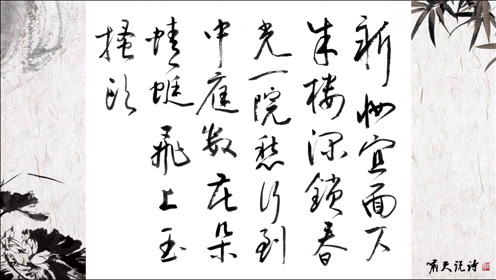 新妆宜面下
朱楼深鎖春
光一院愁行到
中庭数花朵
蜻蜓飛上玉
搔头
天说诗